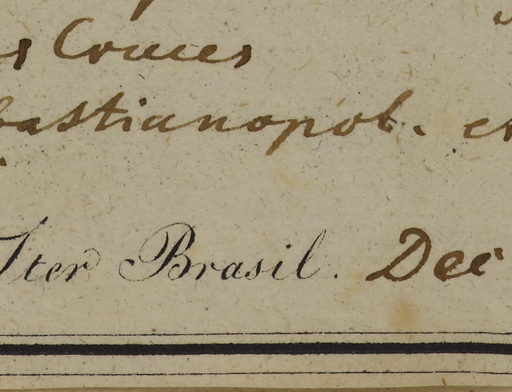 s Cruces
bastianopol. et
Iter Brasil. Dec